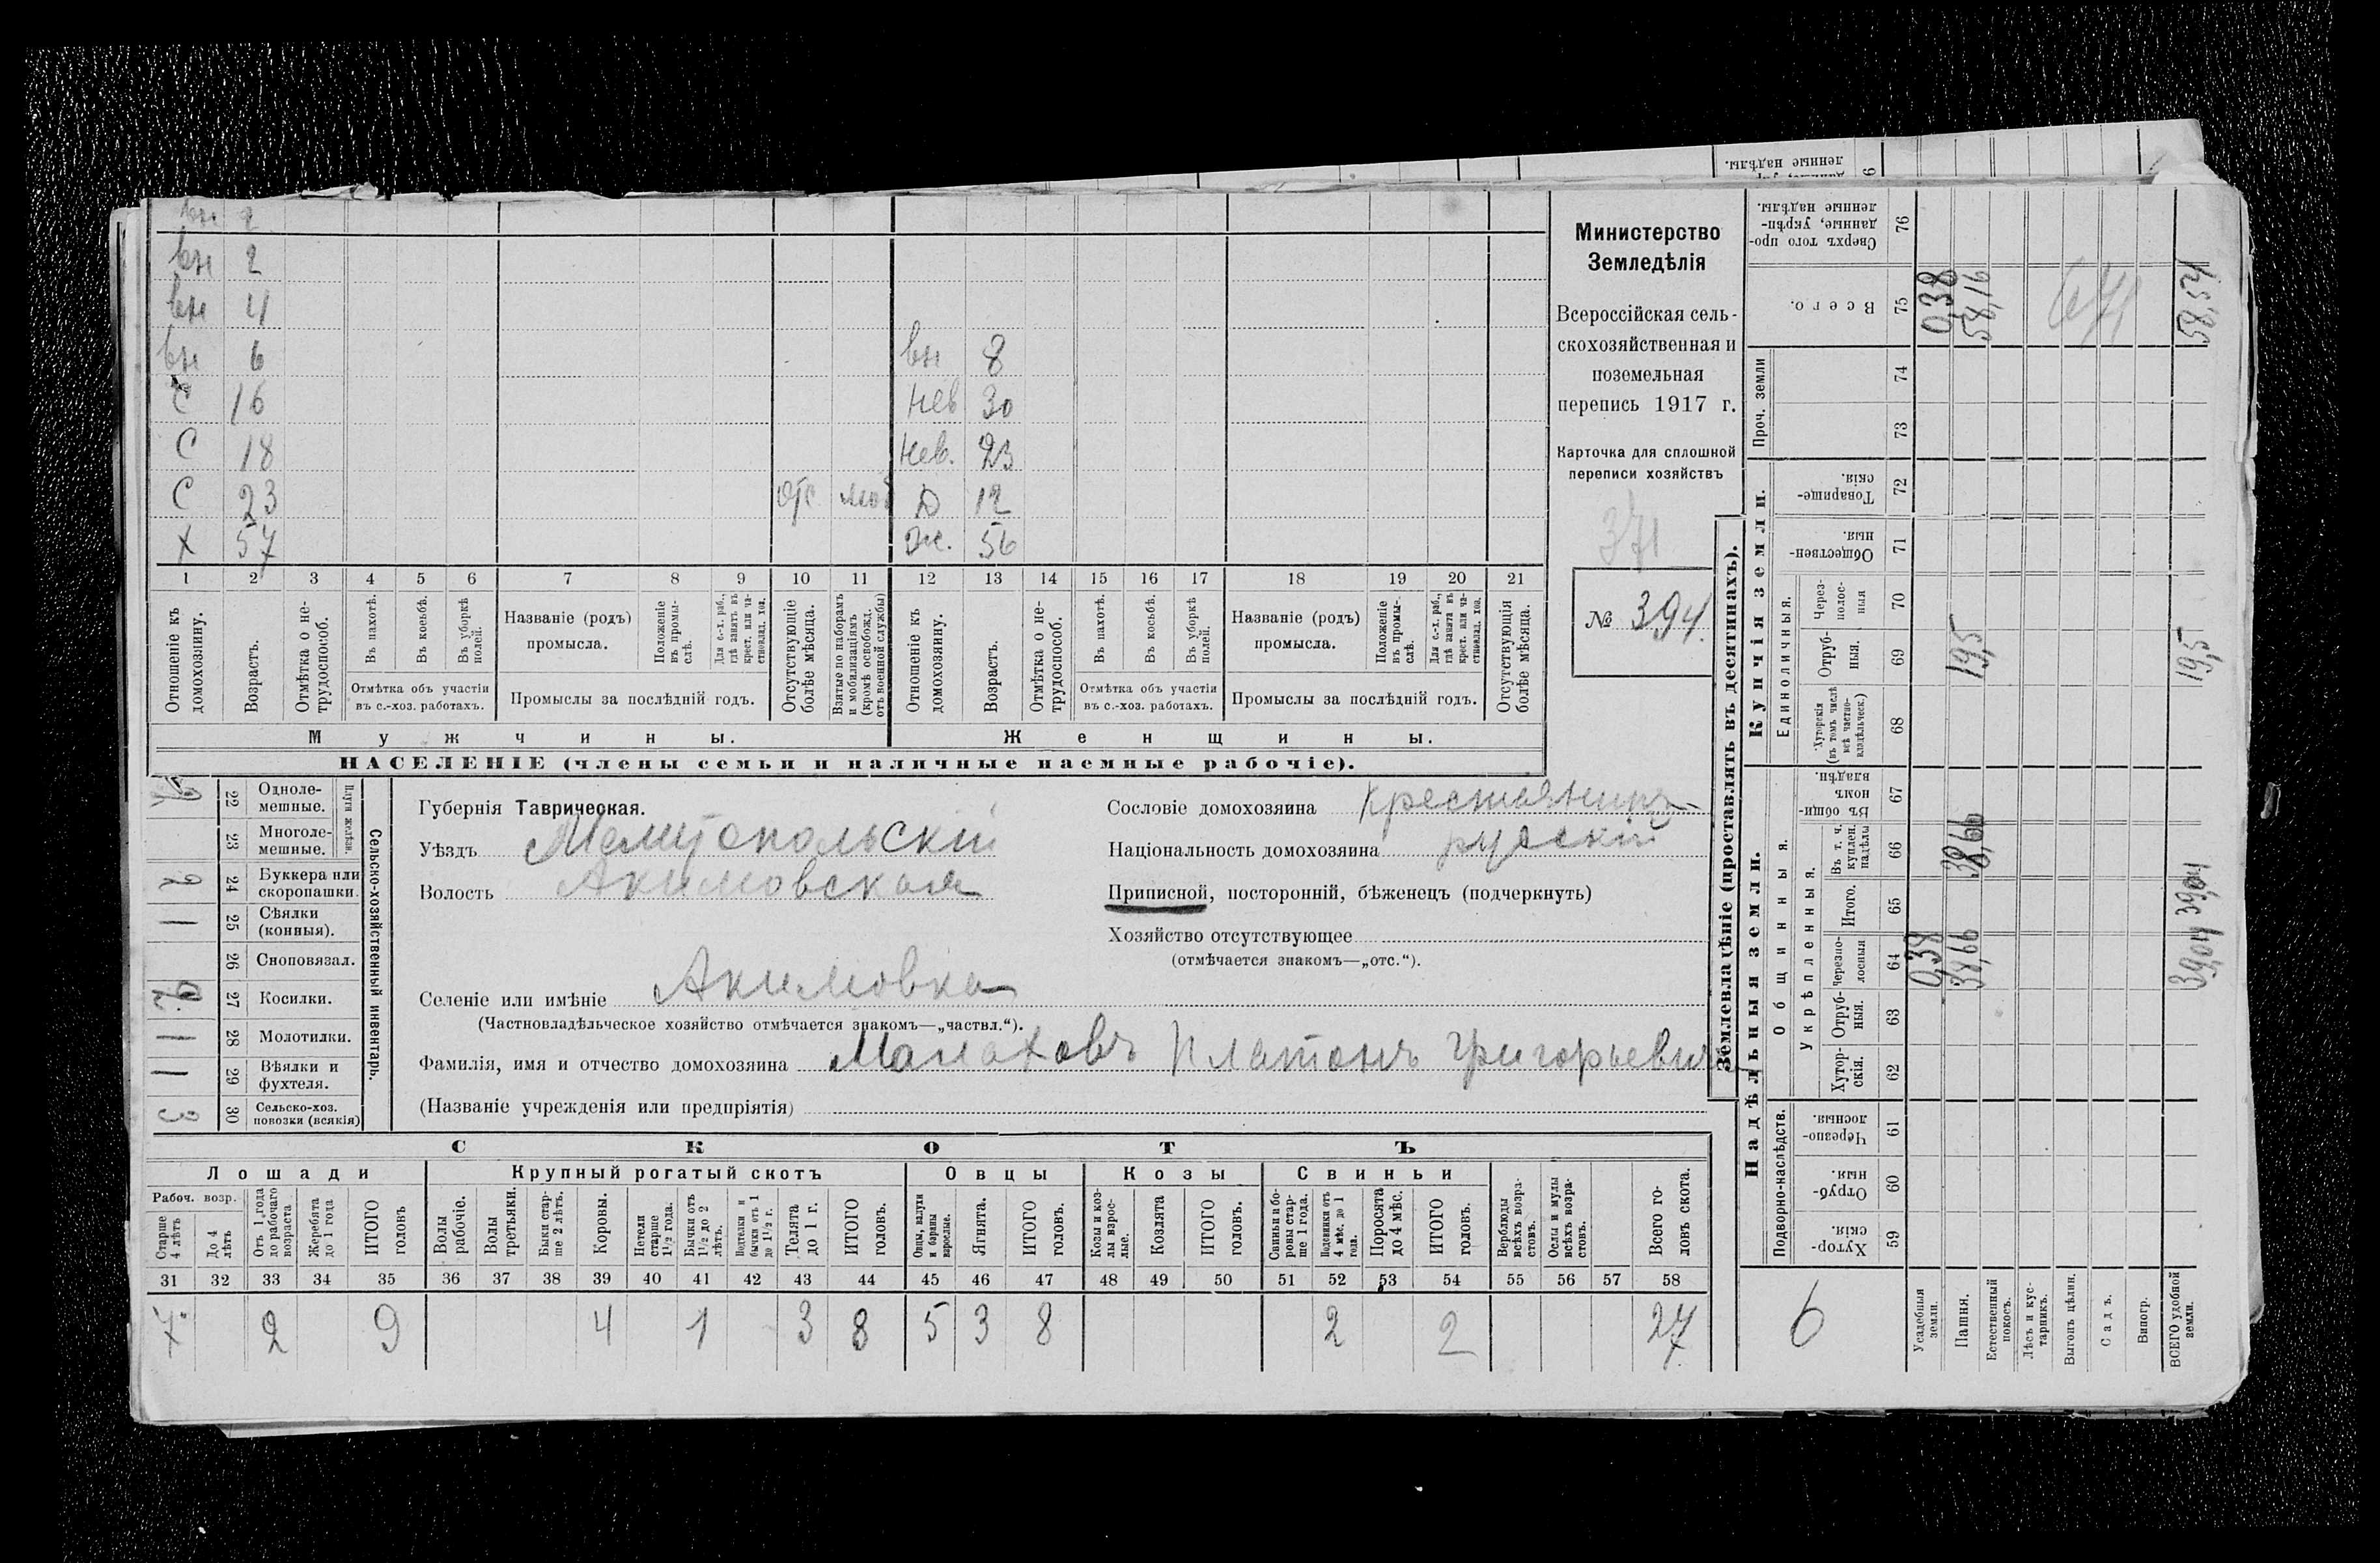 вн 2
вн 2
вн 4
вн 6 вн 8
С 16 нев 30
С 18 нев. 23
С 23 отс моб Д 12
Х 57 Ж. 56
1 2 3 4 5 6 7 8 9 10 11 12 13 14 15 16 17 18 19 20 21
Отношеніе къ домохозяину.
Возрастъ.
Отмѣтка о не-трудоспособ.
Въ пахотѣ.
Въ косьбѣ.
Въ уборкѣ полей.
Отмѣтка объ участіи
въ с.-хоз. работахъ.
Названіе (родъ)
промысла.
Положеніе въ промы-слѣ.
Для с.-х. раб., гдѣ занятъ въ крест. или ча-стновлад. хоз.
Промыслы за послѣдній годъ.
Отсутствующіе болѣе мѣсяца.
Взятые по наборамъ и мобилизаціямъ (кромѣ освобожд. отъ военной службы)
Отношеніе къ домохозяину.
Возрастъ.
Отмѣтка о не-трудоспособ.
Въ пахотѣ.
Въ косьбѣ.
Въ уборкѣ полей.
Отмѣтка объ участіи
въ с.-хоз. работахъ.
Названіе (родъ)
промысла.
Положеніе въ промы-слѣ.
Для с.-х. раб., гдѣ занята въ крест. или ча-стновлад. хоз.
Промыслы за послѣдній годъ.
Отсутствующія болѣе мѣсяца.
Мужчины. Женщины.
НАСЕЛЕНІЕ (члены семьи и наличные наемные рабочіе).
Министерство
Земледѣлія
Всероссійская сель-
скохозяйственная и
поземельная
перепись 1917 г.
Карточка для сплошной
переписи хозяйствъ
371
№ 394.
Сельско-хозяйственный инвентарь.
Плуги желѣзн.
22 Одноле-мешные.
23 Многоле-мешные.
2 24 Буккера или скоропашки.
1 25 Сѣялки (конныя).
26 Сноповязал.
2 27 Косилки.
1 28 Молотилки.
1 29 Вѣялки и фухтеля.
3 30 Сельско-хоз. повозки (всякія)
Губернія Таврическая.
Уѣздъ Мелитопольскій
Волость Акимовская
Сословіе домохозяина Крестьянинъ
Національность домохозяина русскій
Приписной, посторонній, бѣженецъ (подчеркнуть)
Хозяйство отсутствующее
(отмѣчается знакомъ—„отс.“).
Селеніе или имѣніе Акимовка
(Частновладѣльческое хозяйство отмѣчается знакомъ—„частвл.“).
Фамилія, имя и отчество домохозяина Малаховъ Платонъ Григорьевич
(Названіе учрежденія или предпріятія)
СКОТЪ
Лошади Крупный рогатый скотъ Овцы Козы Свиньи
Рабоч. возр.
Старше 4 лѣтъ
До 4 лѣтъ
Отъ 1 года до рабочаго возраста
Жеребята до 1 года
ИТОГО головъ
Волы рабочіе.
Волы третьяки.
Быки стар-ше 2 лѣтъ.
Коровы.
Нетели старше 1½ года.
Бычки отъ 1½ до 2 лѣтъ.
Подтелки и бычки отъ 1 до 1½ г.
Телята до 1 г.
ИТОГО головъ.
Овцы, валухи и бараны взрослые.
Ягнята.
ИТОГО головъ.
Козы и коз-лы взрос-лые.
Козлята
ИТОГО головъ.
Свиньи и бо-ровы стар-ше 1 года.
Подсвинки отъ 4 мѣс. до 1 года.
Поросята до 4 мѣс.
ИТОГО головъ.
Верблюды всѣхъ возра-стовъ.
Ослы и мулы всѣхъ возра-стовъ.
Всего го-ловъ скота.
31 32 33 34 35 36 37 38 39 40 41 42 43 44 45 46 47 48 49 50 51 52 53 54 55 56 57 58
7 2 9 4 1 3 8 5 3 8 2 2 27
Землевладѣніе (проставлять въ десятинахъ).
Надѣльныя земли. Купчія земли.
Проч. земли
Подворно-наслѣдств.
Общинныя.
Укрѣпленныя.
Единоличныя.
Хутор-скія. 59
Отруб-ныя. 60
Черезпо-лосныя. 61
Хутор-скія. 62
Отруб-ныя. 63
Черезпо-лосныя 64
Итого. 65
Въ т. ч. куплен. надѣлы 66
Въ общи-номъ владѣн. 67
Хуторскія (въ томъ числѣ всѣ частно-владѣльческ.) 68
Отруб-ныя. 69
Через-полос-ныя 70
Обществен-ныя. 71
Товарище-скія. 72
73
74
Всего. 75
Сверхъ того про-данные, укрѣп-ленные надѣлы. 76
6
Усадебныя земли. 0,38 0,38
Пашня. 38,66 38,66 19,5 58,16
Естественный покосъ.
Лѣсъ и кус-тарникъ.
Выгонъ цѣлин.
Садъ.
Виногр.
ВСЕГО удобной земли. 39,04 39,04 19,5 58,54